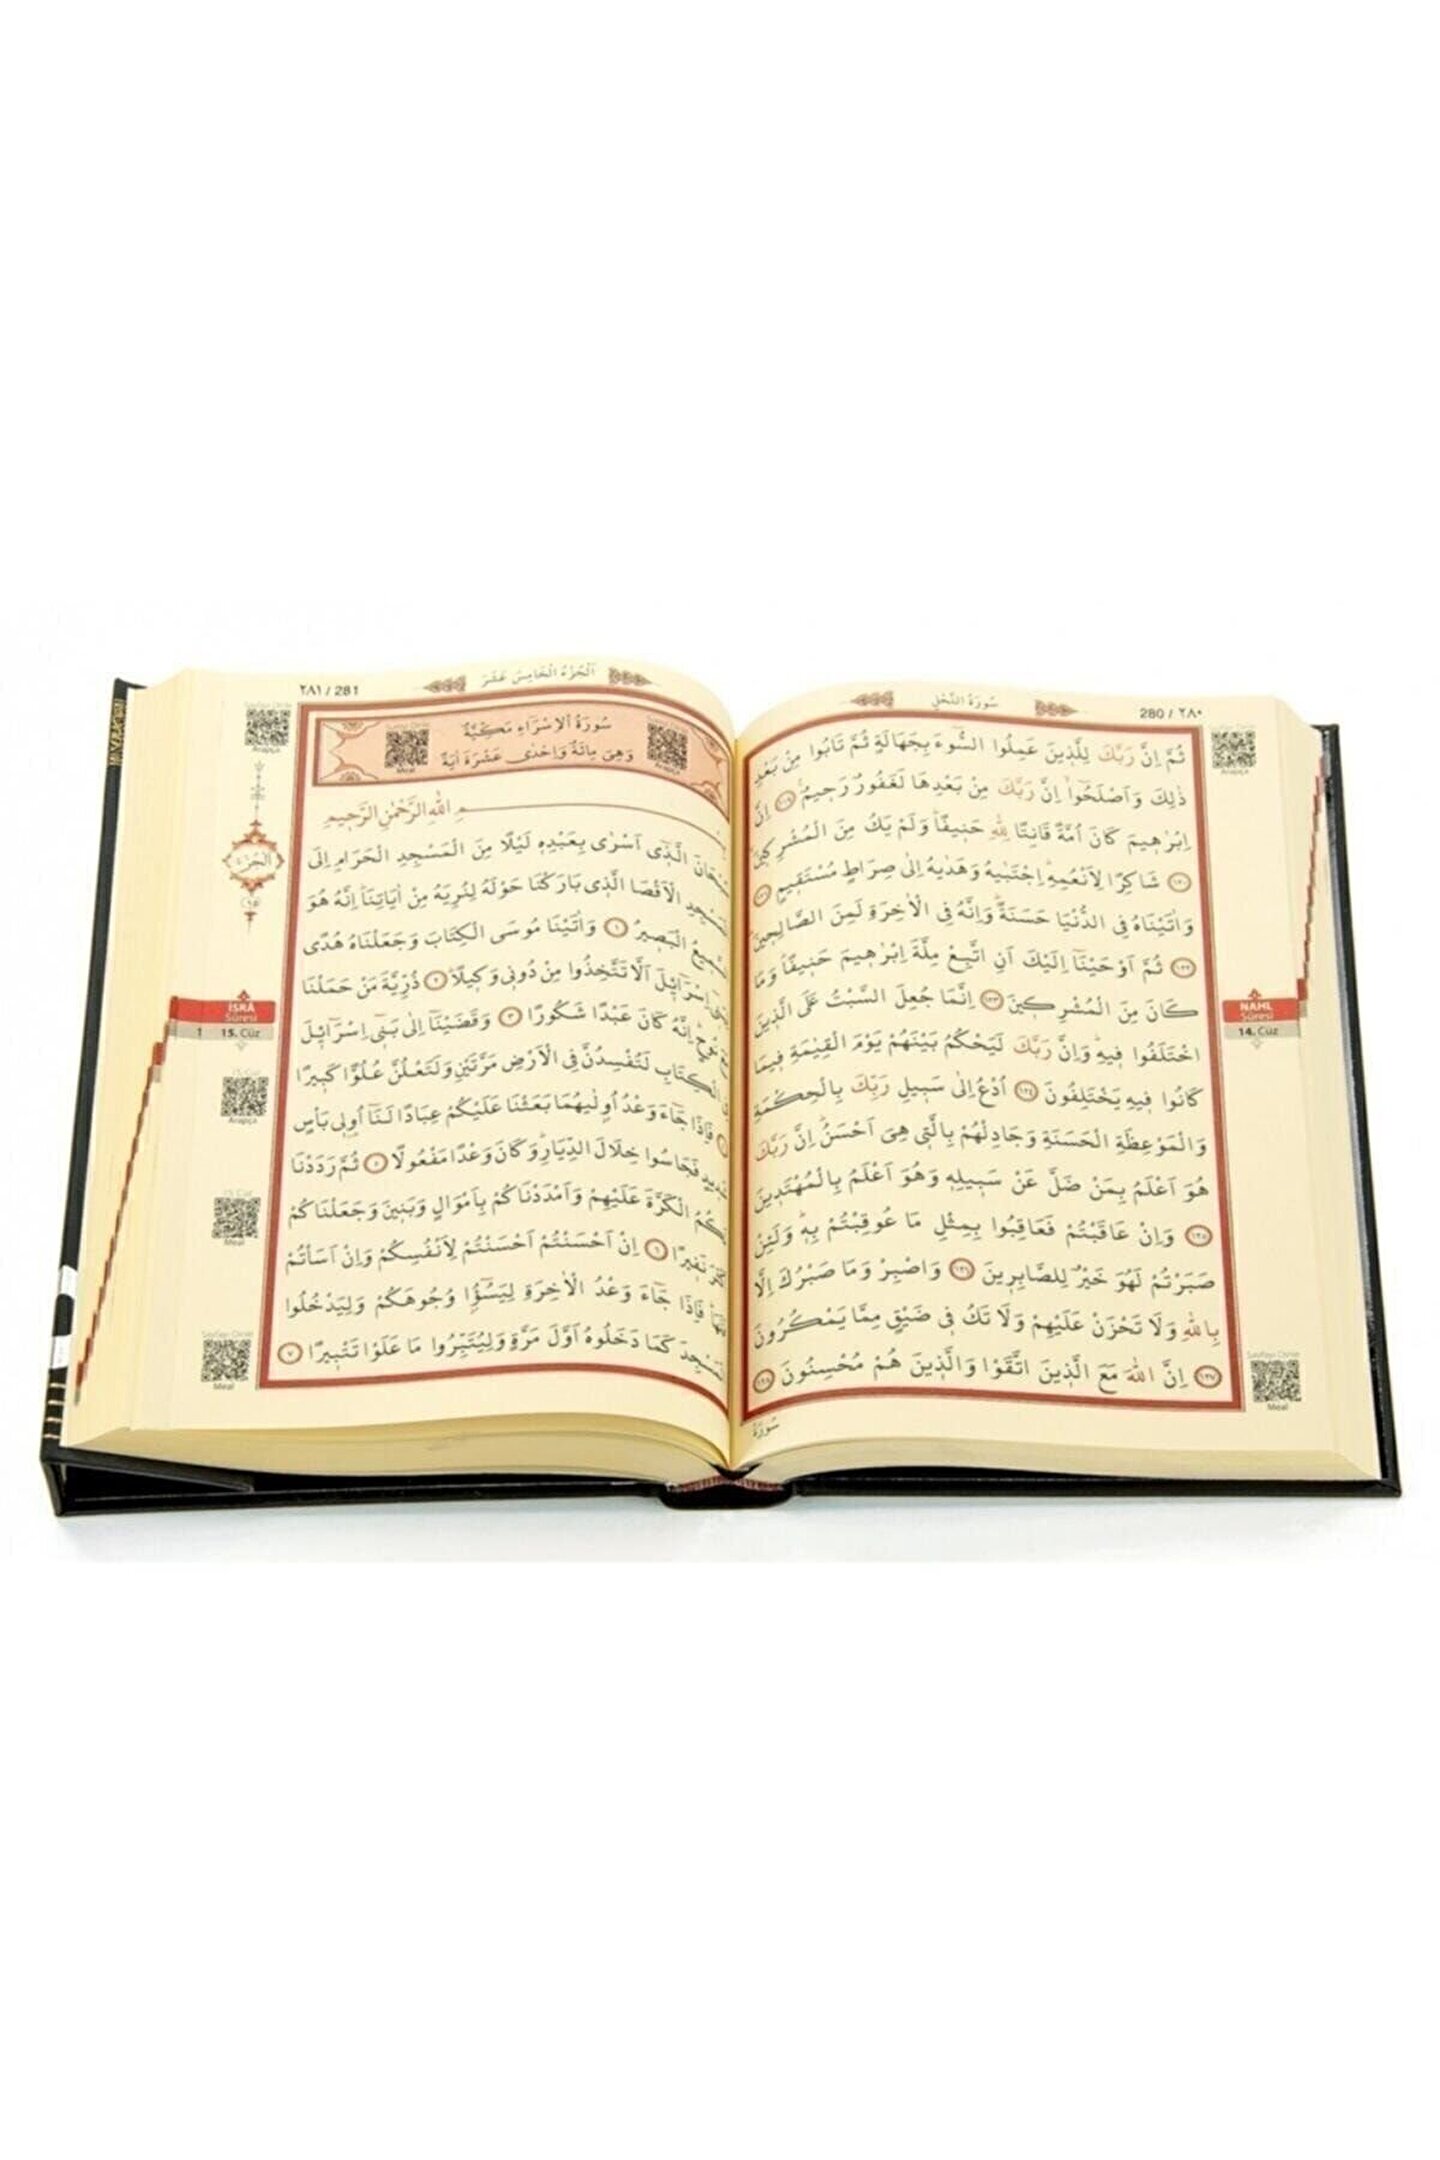 280 / ٢٨٠
سُورَةُ النَّحْلِ
ثُمَّ اِنَّ رَبَّكَ لِلَّذ۪ينَ عَمِلُوا السُّٓوءَ بِجَهَالَةٍ ثُمَّ تَابُوا مِنْ بَعْدِ
ذٰلِكَ وَاَصْلَحُٓوا اِنَّ رَبَّكَ مِنْ بَعْدِهَا لَغَفُورٌ رَح۪يمٌ ﴿١١٩﴾ اِنَّ
اِبْرٰه۪يمَ كَانَ اُمَّةً قَانِتًا لِلّٰهِ حَن۪يفًا وَلَمْ يَكُ مِنَ الْمُشْرِك۪ينَ
﴿١٢٠﴾ شَاكِرًا لِاَنْعُمِهِ اِجْتَبٰيهُ وَهَدٰيهُ اِلٰى صِرَاطٍ مُسْتَق۪يمٍ ﴿١٢١﴾
وَاٰتَيْنَاهُ فِي الدُّنْيَا حَسَنَةً وَاِنَّهُ فِي الْاٰخِرَةِ لَمِنَ الصَّالِح۪ينَ
﴿١٢٢﴾ ثُمَّ اَوْحَيْنَٓا اِلَيْكَ اَنِ اتَّبِعْ مِلَّةَ اِبْرٰه۪يمَ حَن۪يفًا وَمَا
كَانَ مِنَ الْمُشْرِك۪ينَ ﴿١٢٣﴾ اِنَّمَا جُعِلَ السَّبْتُ عَلَى الَّذ۪ينَ
اخْتَلَفُوا ف۪يهِ وَاِنَّ رَبَّكَ لَيَحْكُمُ بَيْنَهُمْ يَوْمَ الْقِيٰمَةِ ف۪يمَا
كَانُوا ف۪يهِ يَخْتَلِفُونَ ﴿١٢٤﴾ اُدْعُ اِلٰى سَب۪يلِ رَبِّكَ بِالْحِكْمَةِ
وَالْمَوْعِظَةِ الْحَسَنَةِ وَجَادِلْهُمْ بِالَّت۪ي هِيَ اَحْسَنُ اِنَّ رَبَّكَ
هُوَ اَعْلَمُ بِمَنْ ضَلَّ عَنْ سَب۪يلِه۪ وَهُوَ اَعْلَمُ بِالْمُهْتَد۪ينَ
﴿١٢٥﴾ وَاِنْ عَاقَبْتُمْ فَعَاقِبُوا بِمِثْلِ مَا عُوقِبْتُمْ بِه۪ وَلَئِنْ
صَبَرْتُمْ لَهُوَ خَيْرٌ لِلصَّابِر۪ينَ ﴿١٢٦﴾ وَاصْبِرْ وَمَا صَبْرُكَ اِلَّا
بِاللّٰهِ وَلَا تَحْزَنْ عَلَيْهِمْ وَلَا تَكُ ف۪ي ضَيْقٍ مِمَّا يَمْكُرُونَ
﴿١٢٧﴾ اِنَّ اللّٰهَ مَعَ الَّذ۪ينَ اتَّقَوْا وَالَّذ۪ينَ هُمْ مُحْسِنُونَ ﴿١٢٨﴾
سُورَةُ
Arapça
NAHL
Sûresi
14. Cüz
Meal
اَلْجُزْءُ الْخَامِسُ عَشَرَ
٢٨١ / 281
سُورَةُ الْاِسْرَاءِ مَكِّيَّةٌ
وَهِيَ مِائَةٌ وَاِحْدٰى عَشْرَةَ اٰيَةً
Meal
Arapça
مِ اللّٰهِ الرَّحْمٰنِ الرَّح۪يمِ
الَّذ۪ٓي اَسْرٰى بِعَبْدِه۪ لَيْلًا مِنَ الْمَسْجِدِ الْحَرَامِ اِلَى
الْاَقْصَا الَّذ۪ي بَارَكْنَا حَوْلَهُ لِنُرِيَهُ مِنْ اٰيَاتِنَا اِنَّهُ هُوَ
الْبَص۪يرُ ﴿١﴾ وَاٰتَيْنَا مُوسَى الْكِتَابَ وَجَعَلْنَاهُ هُدًى
اِسْرَٓائ۪لَ اَلَّا تَتَّخِذُوا مِنْ دُون۪ي وَك۪يلًا ﴿٢﴾ ذُرِّيَّةَ مَنْ حَمَلْنَا
اِنَّهُ كَانَ عَبْدًا شَكُورًا ﴿٣﴾ وَقَضَيْنَٓا اِلٰى بَن۪ٓي اِسْرَٓائ۪لَ
الْكِتَابِ لَتُفْسِدُنَّ فِي الْاَرْضِ مَرَّتَيْنِ وَلَتَعْلُنَّ عُلُوًّا كَب۪يرًا
فَاِذَا جَٓاءَ وَعْدُ اُو۫لٰيهُمَا بَعَثْنَا عَلَيْكُمْ عِبَادًا لَنَٓا اُو۬ل۪ي بَأْسٍ
فَجَاسُوا خِلَالَ الدِّيَارِ وَكَانَ وَعْدًا مَفْعُولًا ﴿٥﴾ ثُمَّ رَدَدْنَا
الْكَرَّةَ عَلَيْهِمْ وَاَمْدَدْنَاكُمْ بِاَمْوَالٍ وَبَن۪ينَ وَجَعَلْنَاكُمْ
نَف۪يرًا ﴿٦﴾ اِنْ اَحْسَنْتُمْ اَحْسَنْتُمْ لِاَنْفُسِكُمْ وَاِنْ اَسَأْتُمْ
فَاِذَا جَٓاءَ وَعْدُ الْاٰخِرَةِ لِيَسُٓؤُ۫ا وُجُوهَكُمْ وَلِيَدْخُلُوا
كَمَا دَخَلُوهُ اَوَّلَ مَرَّةٍ وَلِيُتَبِّرُوا مَا عَلَوْا تَتْب۪يرًا ﴿٧﴾
Arapça
اَلْجُزْءُ
١٥
İSRÂ
Sûresi
1 15. Cüz
Arapça
Meal
Meal